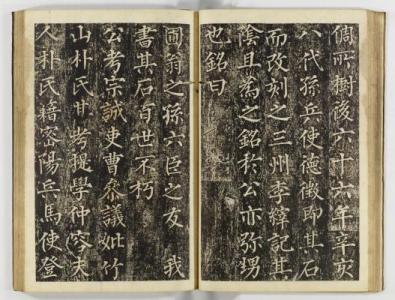 所樹後六十六年辛亥
八代孫兵使德徵即其石
而改刻之三州李縡記其
陰且爲之銘於公亦弥甥
也銘曰
圃翁之孫六臣之友 我
書其石百世不朽
公考宗誠吏曹叅議妣竹
山朴氏其考提學仲容夫
人朴氏籍密陽兵馬使登